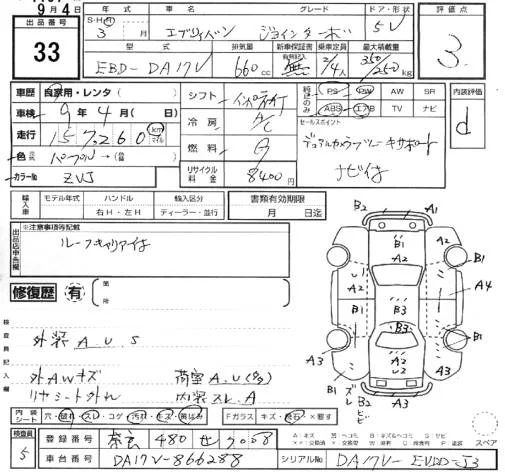 9月4日
年式 車名 グレード ドア・形状 評価点
出品番号 33
S・H・R 3 月 エブリイバン ジョインターボ 5V
型式 排気量 新車保証書 乗車定員 最大積載量
EBD-DA17V 660cc 無 2/4人 350/250kg
3
車歴 自家用・レンタ( )
車検 9年4月( 日)
走行 157,260 km マイル
色 パープル→
カラーNo ZVJ
シフト インパネAT
冷房 A/C
燃料 ガ
リサイクル料金 8400円
純正のみ PS PW AW SR
ABS エアB TV ナビ
内装評価 d
セールスポイント
デュアルカメラブレーキサポート
ナビ付
輸入車 モデル年式 ハンドル 輸入区分
右H・左H ディーラー・並行
書類有効期限
月 日迄
出品店申告欄 ※注意事項等記載
ルーフキャリア付
修復歴 有 箇所
検査員記入欄
外装 A.U.S
外AWキズ 荷室A.U(多)
リヤシート外れ 内装スレ.A
内装シート 穴・破れ・スレ・コゲ・汚れ・キズ・黄ばみ Fガラス キズ・飛石・×要す
検査員 5
登録番号 奈良 480 せ 2068
車台番号 DA17V-866288
シリアルNo DA17V-EVDD-J3
スペア
A2 A1
B1
A2
B1 B1
A2 A2 A4
B3
B3
A3 B1
A2
A3 A3